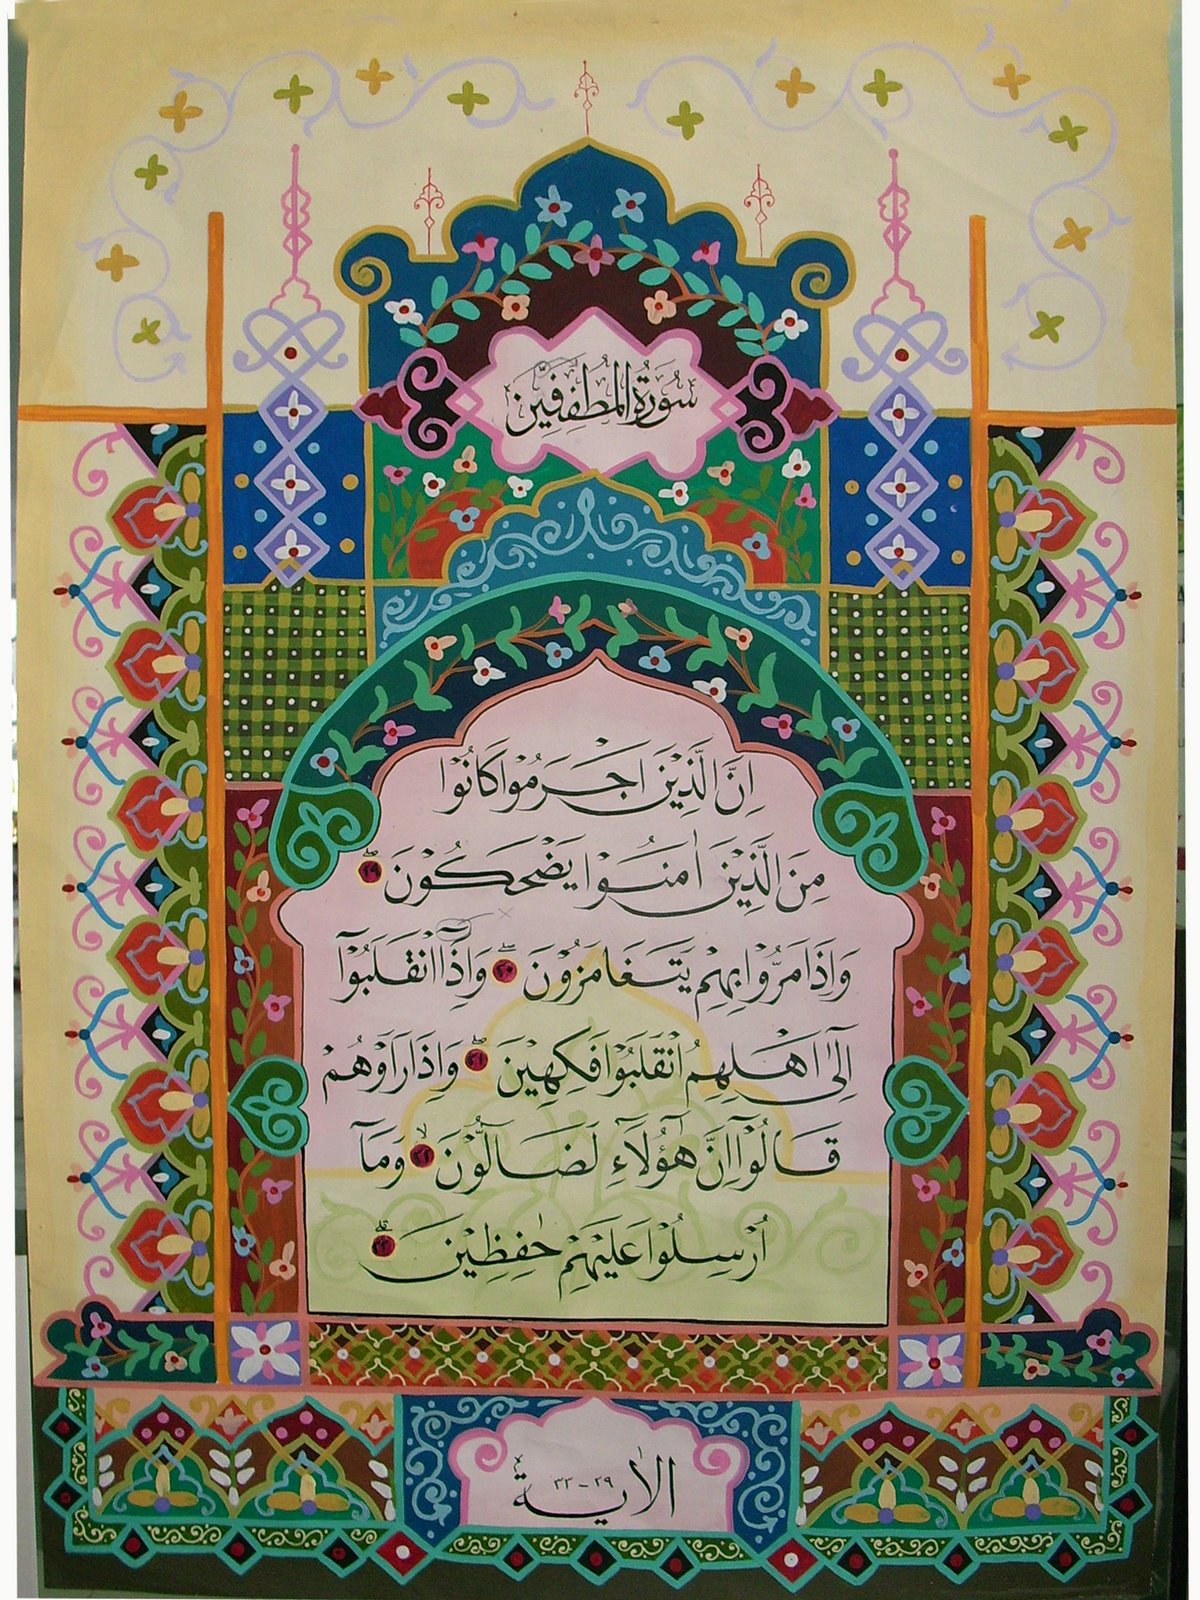 سُوْرَةُ الْمُطَفِّفِيْنَ
اِنَّ الَّذِيْنَ اَجْرَمُوْا كَانُوْا
مِنَ الَّذِيْنَ اٰمَنُوْا يَضْحَكُوْنَ ۖ ٢٩
وَاِذَا مَرُّوْا بِهِمْ يَتَغَامَزُوْنَ ۖ ٣٠ وَاِذَآ انْقَلَبُوْٓا
اِلٰٓى اَهْلِهِمُ انْقَلَبُوْا فَكِهِيْنَ ۖ ٣١ وَاِذَا رَاَوْهُمْ
قَالُوْٓا اِنَّ هٰٓؤُلَاۤءِ لَضَاۤلُّوْنَ ۙ ٣٢ وَمَآ
اُرْسِلُوْا عَلَيْهِمْ حٰفِظِيْنَ ۗ ٣٣
الاٰية ٢٩-٣٣